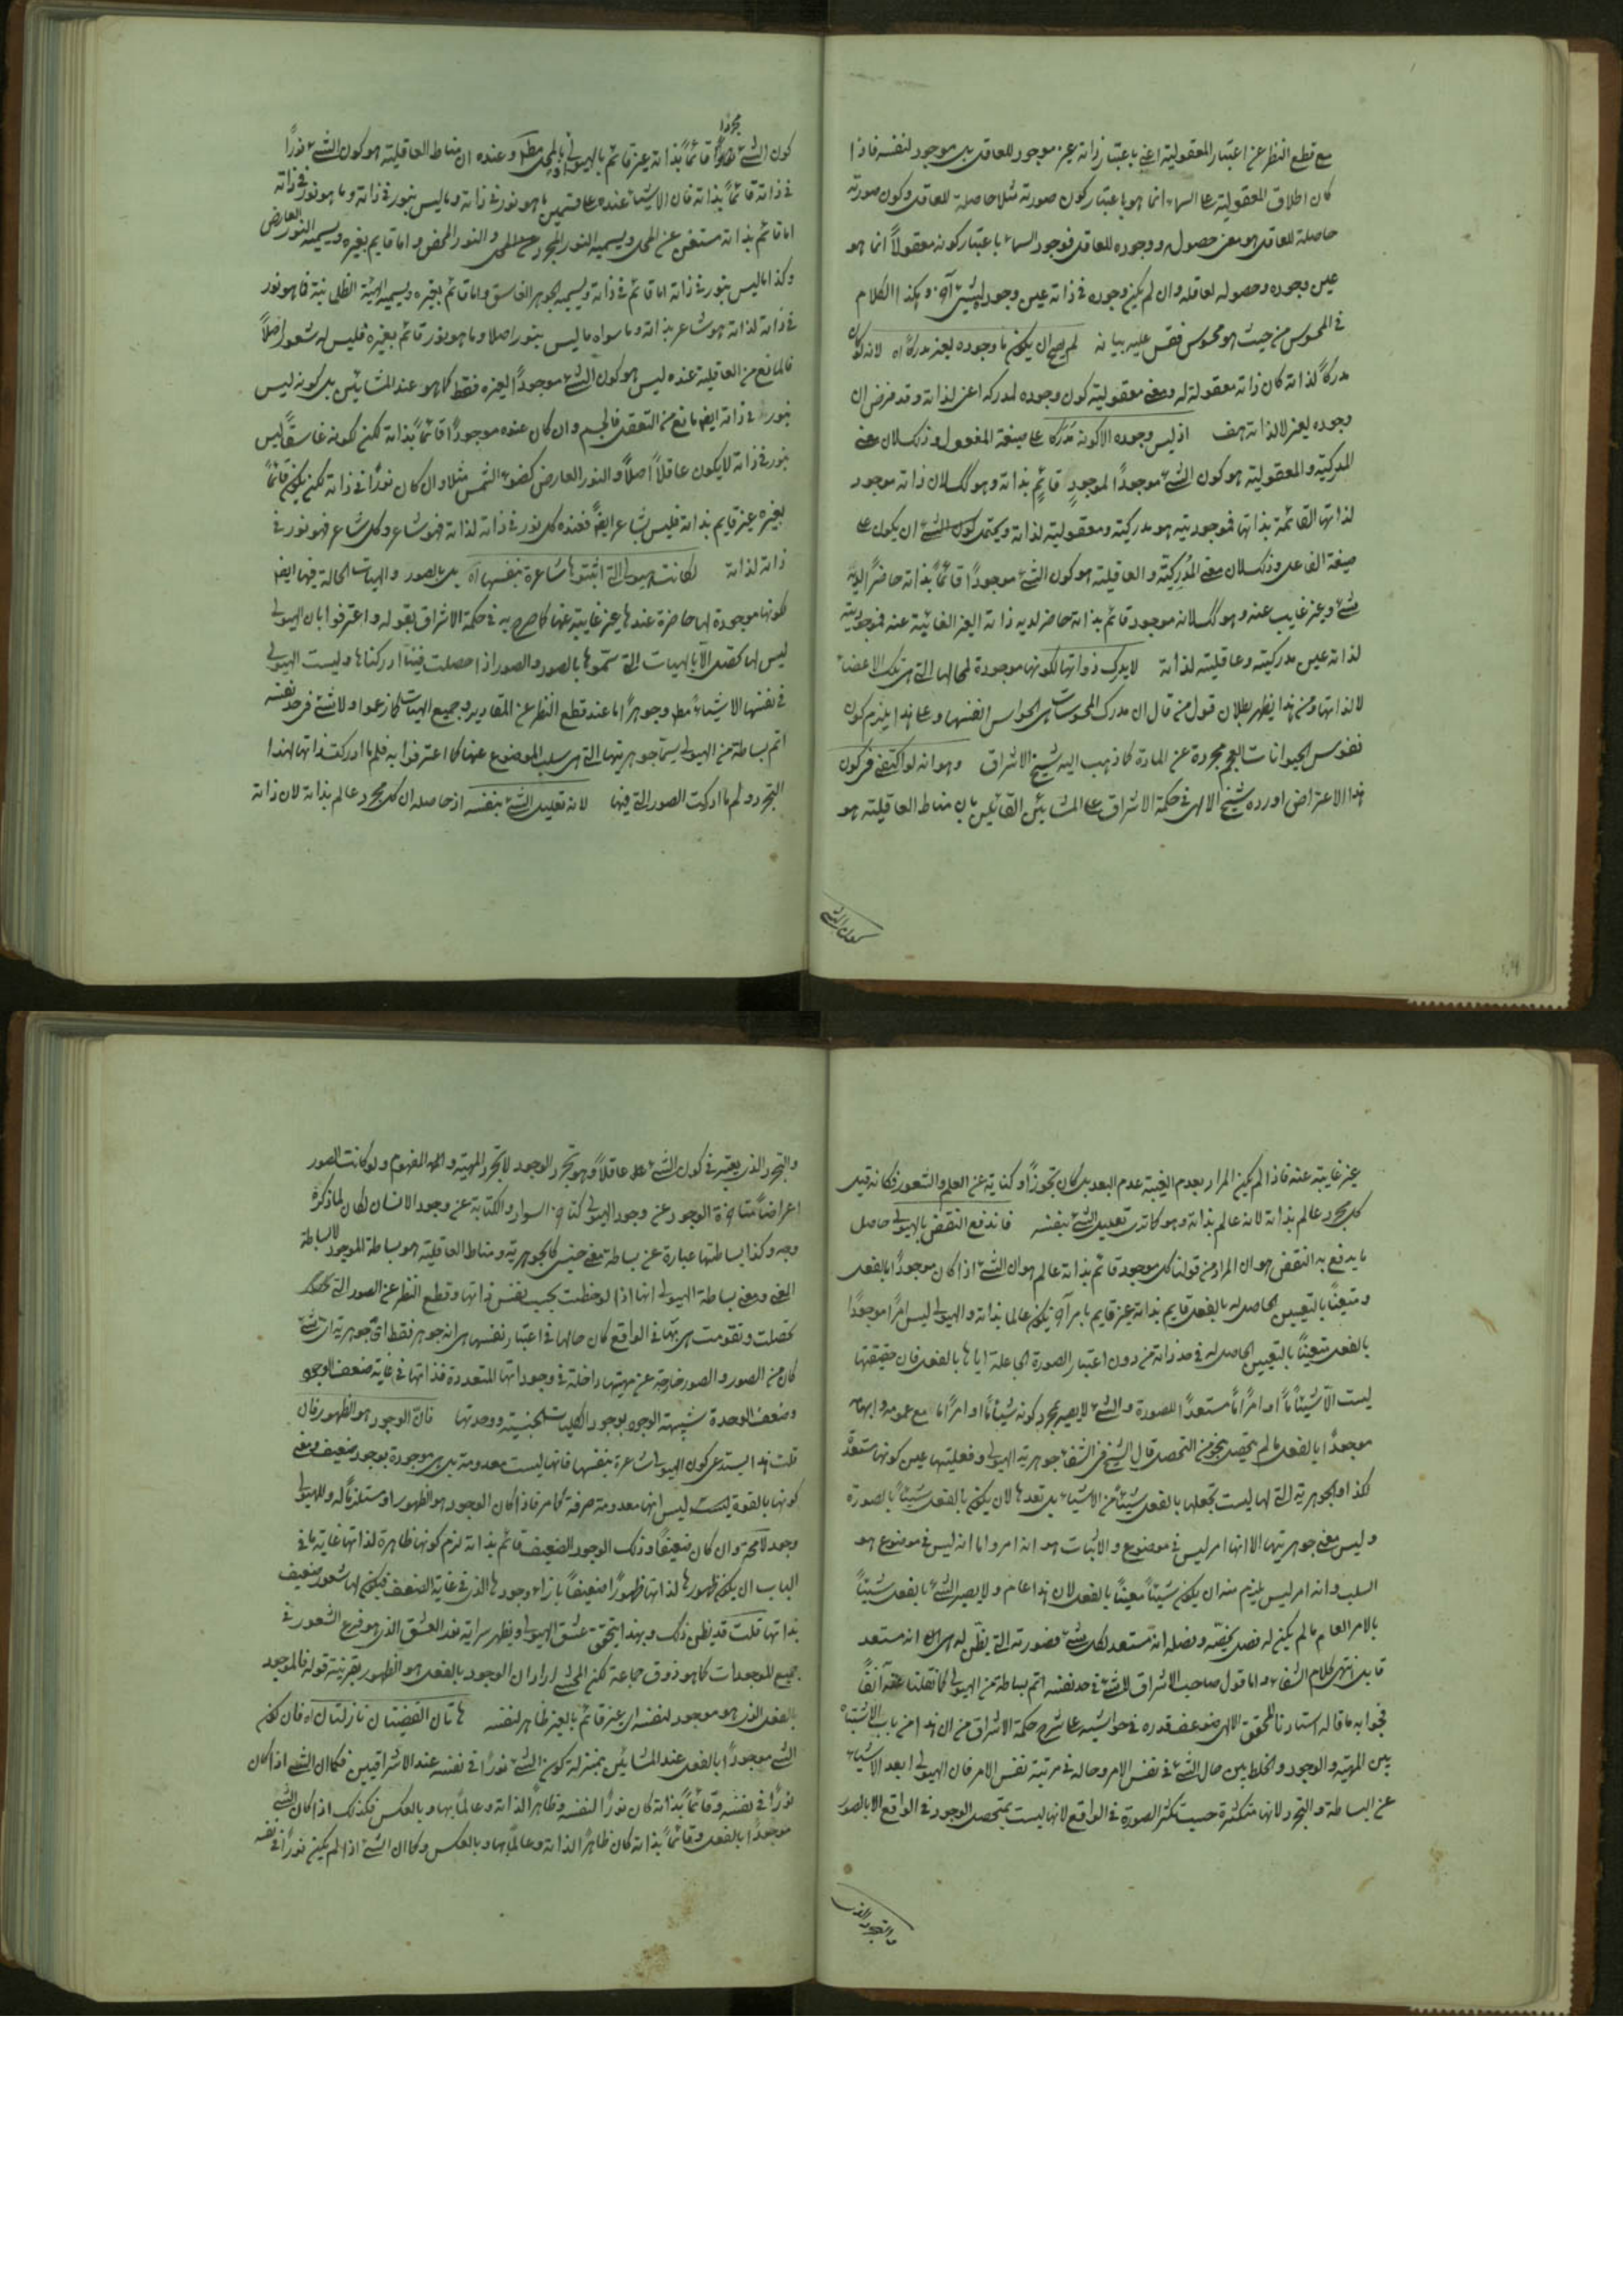 مع قطع النظر عن اعتبار المعقولية اعنى باعتبار ذاته غير موجود للعاقل بل موجود لنفسه فاذا
كان اطلاق المعقولية على السماء انما هو باعتبار كون صورته مثلا حاصلة للعاقل وكون صورته
حاصلة للعاقل هو معنى حصوله ووجوده للعاقل فوجود السماء باعتبار كونه معقولاً انما هو
عين وجوده وحصوله لعاقله وان لم يكن وجوده فى ذاته عين وجود لشئ آخر وهكذا الكلام
فى المحسوس من حيث هو محسوس فقس عليه بيانه لم يصح ان يكون ما وجوده لغيره مدركا اه لانه لو كان
مدركاً لذاته كان ذاته معقولة له ومعنى معقوليته كون وجوده لمدركه اعنى لذاته وقد فرض ان
وجوده لغيره لا لذاته هف اذ ليس وجوده الا كونه مدركا على صيغة المفعول وذلك لان معنى
المدركية والمعقولية هو كون الشئ موجوداً لموجود قائم بذاته وهو كك لان ذاته موجود
لذاتها القائمة بذاتها فموجوديته هو مدركيته ومعقوليته لذاته ويحتمل كون الشئ ان يكون على
صيغة الفاعل وذلك لان معنى المُدرِكية والعاقلية هو كون الشئ موجوداً قائماً بذاته حاضراً لديه
شئ وغير غايب عنه وهو كك لانه موجود قائم بذاته حاضر لديه ذاته الغير الغائبة عنه فموجوديته
لذاته عين مدركيته وعاقليته لذاته لا يدرك ذواتها لكونها موجودة لمحالها التى هى تلك الاعضاء
لا لذاتها ومن هذا يظهر بطلان قول من قال ان مدرك المحسوسات هى الحواس انفسها وعلى هذا يلزم كون
نفوس الحيوانات العجم مجردة عن المادة كما ذهب اليه شيخ الاشراق وهو انه لو اكتفى فى كون
هذا الاعتراض اورده شيخ الالهى فى حكمة الاشراق على المشائين القائلين بان مناط العاقلية هو
كون الشئ
كون الشئ مجردا قائماً بذاته غير قائم بالهيولى او بالمحل مطلقا وعنده ان مناط العاقلية هو كون الشئ نوراً
فى ذاته قائماً بذاته فان الاشياء عنده على قسمين ما هو نور فى ذاته وما ليس بنور فى ذاته وما هو نور فى ذاته
اما قائم بذاته مستغن عن المحل ويسميه النور المجرد عن المحل والنور المحض واما قايم بغيره ويسميه النور العارض
وكذا ما ليس بنور فى ذاته اما قائم فى ذاته ويسميه الجوهر الغاسق واما قائم بغيره ويسميه الهيئة الظلمانية فما هو نور
فى ذاته لذاته هو شاعر بذاته وما سواه ما ليس بنور اصلا وما هو نور قائم بغيره فليس له شعور اصلاً
فالمانع من العاقلية عنده ليس هو كون الشئ موجوداً لغيره فقط كما هو عند المشائين بل كونه ليس
بنور فى ذاته ايضا مانع من التعقل فالجسم وان كان عنده موجوداً قائماً بذاته لكن لكونه غاسقاً ليس
بنور فى ذاته لا يكون عاقلاً اصلاً والنور العارض كضوء الشمس مثلا وان كان نوراً فى ذاته لكن يكون قائماً
بغيره غير قايم بذاته فليس بشاعر ايضاً فعنده كل نور فى ذاته لذاته فهو شاعر وكل شاعر فهو نور فى
ذاته لذاته لكانت الهيولى التى اثبتوها شاعرة بنفسها اه بل بالصور والهيات الحالة فيها ايضا
لكونها موجودة لها حاضرة عندها غير غايبة عنها كما صرح به فى حكمة الاشراق بقوله واعترفوا بان الهيولى
ليس لها تخصل الا بالهيات التى سموها بالصور والصور اذا حصلت فينا ادركناها وليست الهيولى
فى نفسها الا شيئا ما مطلقا وجوهراً ما عند قطع النظر عن المقادير وجميع الهيات كما زعموا ولا شئ فى حد نفسه
اتم بساطة من الهيولى سيما جوهريتها التى هى سلب الموضوع عنها كما اعترفوا به فلم ما ادركت ذاتها لهذا
التجرد ولم ما ادركت الصور التى فيها لانه تعليل الشئ بنفسه اذ حاصله ان كل مجرد عالم بذاته لان ذاته
غير غايبة عنه فاذا لم يكن المراد بعدم الغيبة عدم البعد بل كان تجوزاً وكناية عن العلم والشعور فكانه قيل
كل مجرد عالم بذاته لانه عالم بذاته وهو كما ترى تعليل الشئ بنفسه فاندفع النقض بالهيولى حاصل
ما يدفع به النقض هو ان المراد من قولنا كل موجود قائم بذاته عالم هو ان الشئ اذا كان موجوداً بالفعل
ومتعيناً بالتعيين الحاصل له بالفعل قايم بذاته غير قايم بامر آخر يكون عالما بذاته والهيولى ليس امراً موجوداً
بالفعل متعيناً بالتعيين الحاصل له فى حد ذاته من دون اعتبار الصورة الجاعلة اياها بالفعل فان حقيقتها
ليست الا شيئاً ما او امراً ما مستعداً للصورة والشئ لا يصير بمجرد كونه شيئا ما او امراً ما مع عمومه وابهامه
موجوداً بالفعل ما لم يتحصل بنحو من التحصل قال الشيخ فى الشفا جوهرية الهيولى وفعليتها عين كونها مستعدة
لكذا والجوهرية التى لها ليست تجعلها بالفعل شيئاً من الاشياء بل تعدها لان يكون بالفعل شيئاً بالصورة
وليس معنى جوهريتها الا انها امر ليس فى موضوع والاثبات هو انه امر واما انه ليس فى موضوع هو
السلب وانه امر ليس يلزم منه ان يكون شيئاً معيناً بالفعل لان هذا عام ولا يصير الشئ بالفعل شيئاً
بالامر العام ما لم يكن له فصل يخصه وفصله انه مستعد لكل شئ فصورته التى يظن له هى انه مستعد
قابل انتهى كلام الشفا واما قول صاحب الاشراق لا شئ فى حد نفسه اتم بساطة من الهيولى كما نقلنا عنه آنفاً
فجوابه ما قاله استادنا المحقق الالهى ضوعف قدره فى حواشيه على شرح حكمة الاشراق من ان هذا من باب الاشتباه
بين المهية والوجود والخلط بين حال الشئ فى نفس الامر وحاله فى مرتبة نفس الامر فان الهيولى ابعد الاشياء
عن البساطة والتجرد لانها متكثرة حسب تكثر الصورة فى الواقع لانها ليست بمتحصل الوجود فى الواقع الا بالصور
والتجرد الذى
والتجرد الذى يعتبر فى كون الشئ عاقلاً هو تجرد الوجود لا تجرد المهية والمفهوم ولو كانت الصور
اعراضاً متاخرة الوجود عن وجود الهيولى كتاخر السواد والكتابة عن وجود الانسان لكان لما ذكره
وجه وكذا بساطتها عبارة عن بساطة معنى جنسى كالجوهرية ومناط العاقلية هو بساطة الموجود لا بساطة
المعنى ومعنى بساطة الهيولى انها اذا لوحظت بحسب نفس ذاتها وقطع النظر عن الصور التى
تحصلت وتقومت هى بها فى الواقع كان حالها فى اعتبار نفسها هى انه جوهر فقط اى جوهرية اى شئ
كان من الصور والصور خارجة عن مهيتها داخلة فى وجوداتها المتعددة فذاتها فى غاية ضعف الوجود
وضعف الوحدة شبيهة الوجود بوجود الكليات الجنسية ووحدتها فان الوجود هو الظهور فان
قلت هذا يستدعى كون الهيولى شاعرة بنفسها فانها ليست معدومة بل هى موجودة بوجود ضعيف ومعنى
كونها بالقوة ليس انها معدومة صرفة كما مر فاذا كان الوجود هو الظهور او مستلزماً له وللهيولى
وجود لا محة وان كان ضعيفاً وذلك الوجود الضعيف قائم بذاته لزم كونها ظاهرة لذاتها غاية ما فى
الباب ان يكون ظهورها لذاتها ظهوراً ضعيفاً بازاء وجودها الذى فى غاية الضعف فيكون لها شعور ضعيف
بذاتها قلت قد يظن ذلك وبهذا يتحقق عشق الهيولى ويظهر سراية نور العشق الذى هو فرع الشعور فى
جميع الموجودات كما هو ذوق جماعة لكن المحشى اراد ان الوجود بالفعل هو الظهور بقرينة قوله فالموجود
بالفعل الذى هو موجود لنفسه اى غير قائم بالغير ظاهر لنفسه هاتان القضيتان نازلتان اه فان كون
الشئ موجوداً بالفعل عند المشائين بمنزلة كون الشئ نوراً فى نفسه عند الاشراقيين فكما ان الشئ اذا كان
نوراً فى نفسه وقائماً بذاته كان نوراً لنفسه وظاهراً لذاته وعالماً بها وبالعكس فكذلك اذا كان الشئ
موجوداً بالفعل وقائماً بذاته كان ظاهراً لذاته وعالماً بها وبالعكس وكما ان الشئ اذا لم يكن نوراً فى نفسه